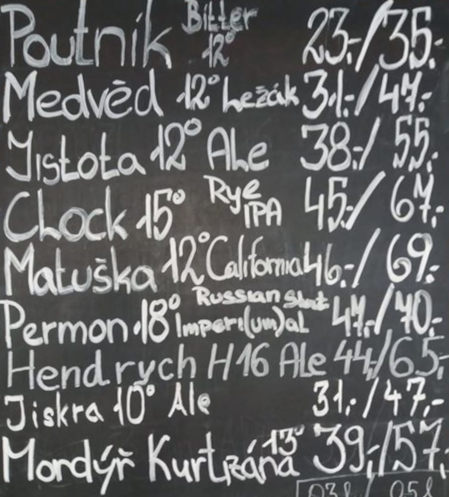 Poutník Bitter 12° 23.-/35.-
Medvěd 12° Ležák 31.-/47.-
Jistota 12° Ale 38.-/55.-
Clock 15° Rye IPA 45.-/67.-
Matuška 12° California 46.-/69.-
Permon 18° Russian Imper(um)al 47.-/70.-
Hendrych H16 Ale 44/65.-
Jiskra 10° Ale 31.-/47.-
Mordýř Kurtizána 13° 39.-/57.-